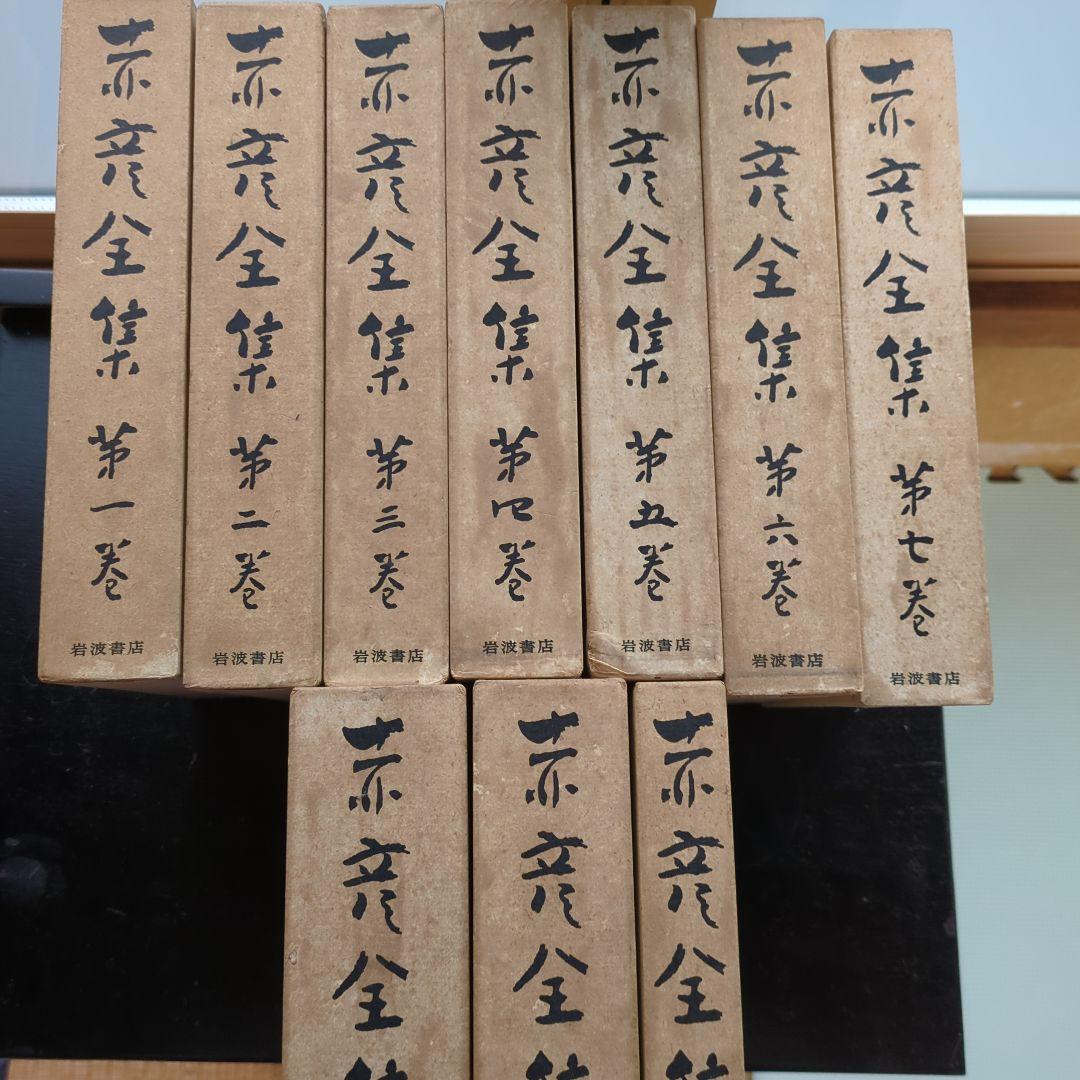 赤彦全集 第一巻
岩波書店
赤彦全集 第二巻
岩波書店
赤彦全集 第三巻
岩波書店
赤彦全集 第四巻
岩波書店
赤彦全集 第五巻
岩波書店
赤彦全集 第六巻
岩波書店
赤彦全集 第七巻
岩波書店
赤彦全集
赤彦全集
赤彦全集